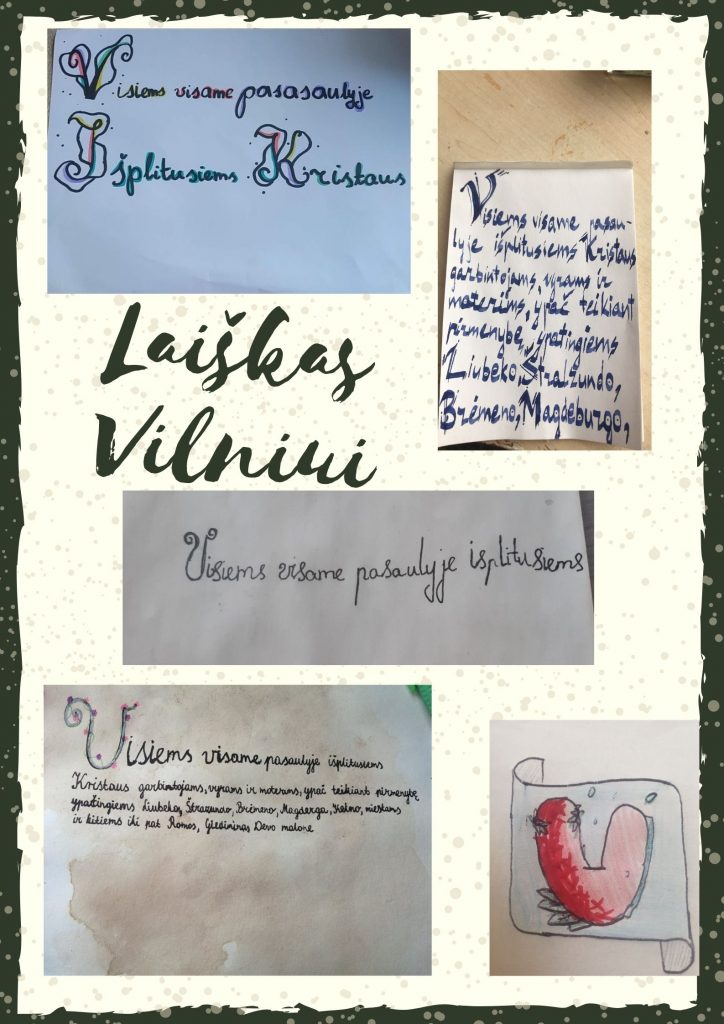 Visiems visame pasasaulyje
Išplitusiems Kristaus
Visiems visame pasau-
lyje išplitusiems Kristaus
garbintojams, vyrams ir
moterims, ypač teikiant
pirmenybę, ypatingiems
Liubeko, Štralzundo,
Brėmeno, Magdeburgo,
Laiškas
Vilniui
Visiems visame pasaulyje isplitusiems
Visiems visame pasaulyje išplitusiems
Kristaus garbintojams, vyrams ir moterams, ypač teikiant pirmenybę
ypatingiems Liubekos, Štrazundo, Brėmeno, Magderga, miestams
ir kitiems iki pat Romos, malone
U